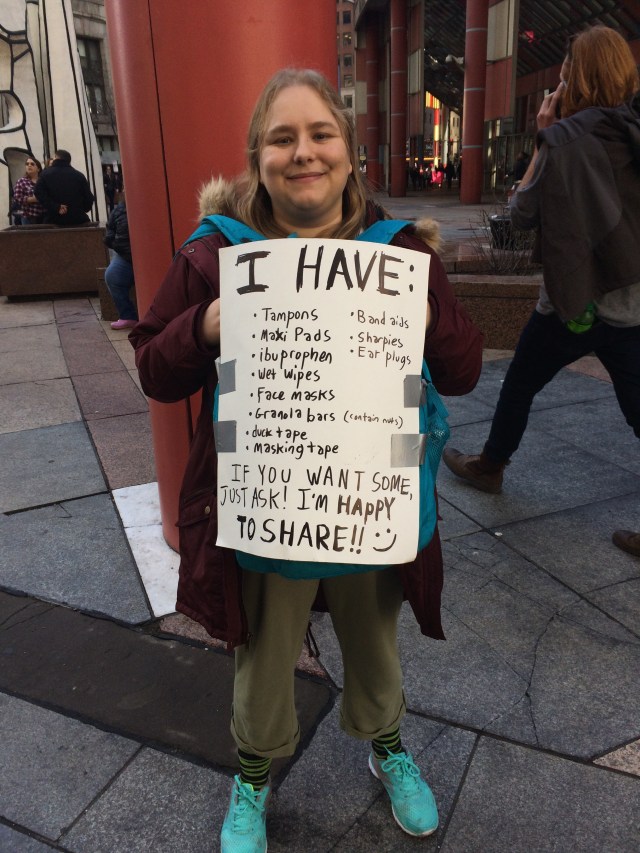 I HAVE:
• Tampons
• Maxi Pads
• ibuprophen
• Wet Wipes
• Face masks
• Granola bars (contain nuts)
• duck tape
• masking tape
• Band aids
• sharpies
• Ear plugs
IF YOU WANT SOME,
JUST ASK! I'M HAPPY
TO SHARE!! :)